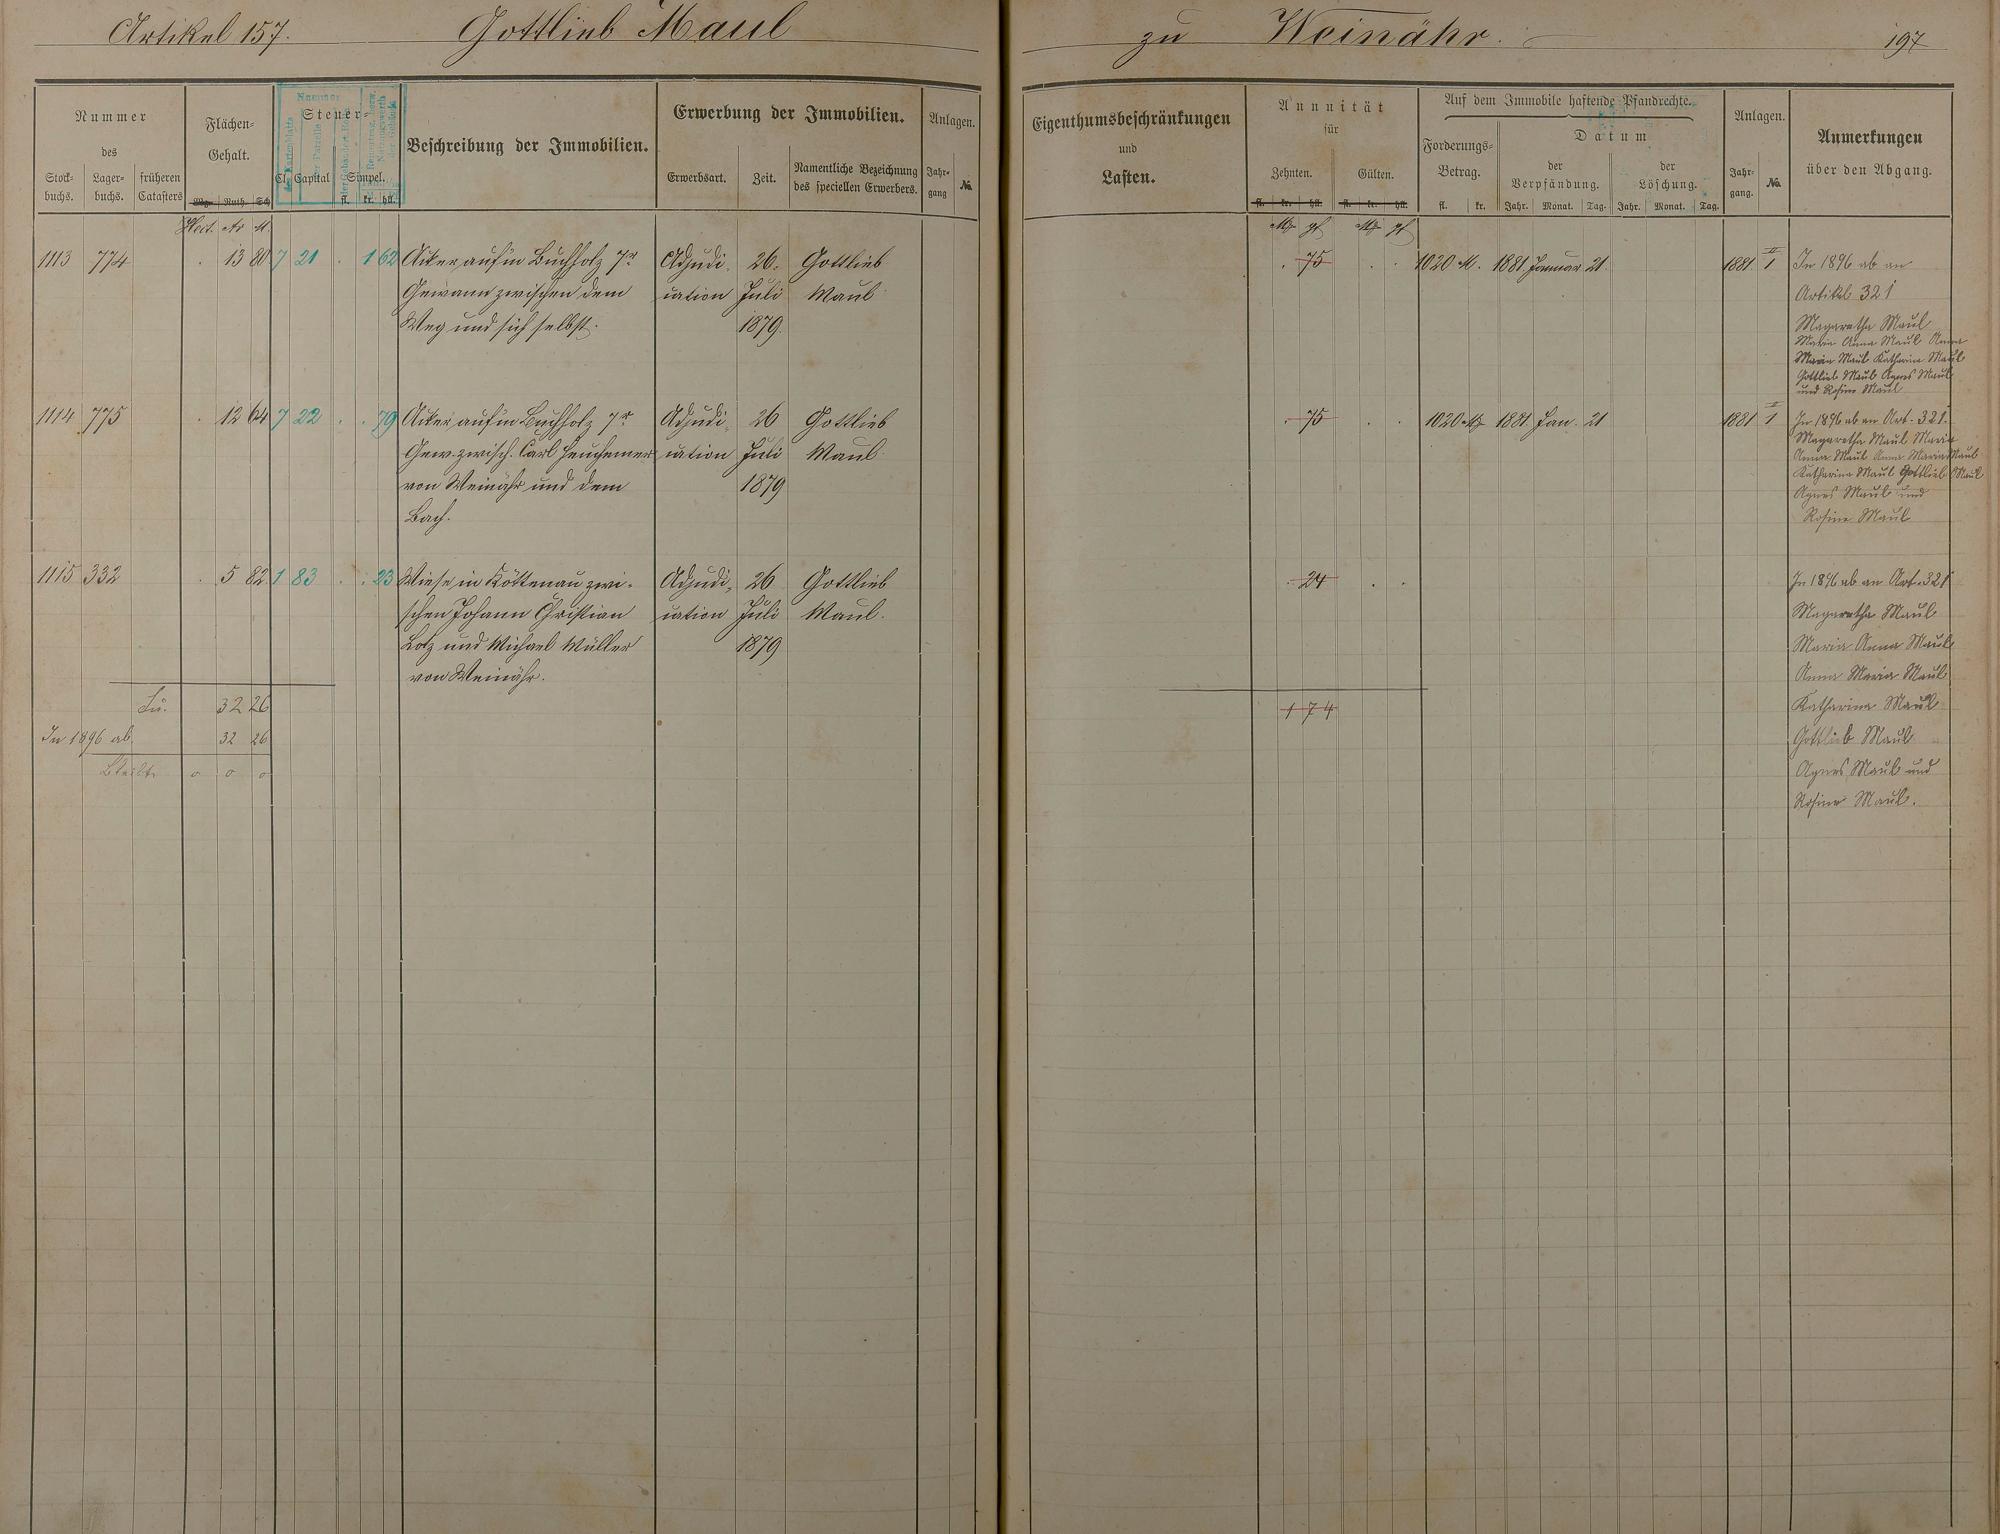 Artikel 157. Gottlieb Maul zu Weinähr. 197
Nummer
des
Stock-buchs. Lager-buchs. früheren Catasters
Flächen-
Gehalt.
Mg. Ruth. Sch
Steuer-
Cl. Capital Simpel.
fl. kr. hll.
Nummer
des Kartenblatts
der Parzelle
der Gebäudest. Rolle
Reinertrag, bezw.
Nutzungswerth
der Gebäude
Beschreibung der Immobilien.
Erwerbung der Immobilien.
Erwerbsart. Zeit. Namentliche Bezeichnung
des speciellen Erwerbers.
Anlagen.
Jahr-
gang No.
Eigenthumsbeschränkungen
und
Lasten.
Annuität
für
Zehnten. Gülten.
fl. kr. hll. fl. kr. hll.
Auf dem Immobile haftende Pfandrechte.
Forderungs-
Betrag.
fl. kr.
Datum
der
Verpfändung.
der
Löschung.
Jahr. Monat. Tag. Jahr. Monat. Tag.
Anlagen.
Jahr-
gang. No.
Anmerkungen
über den Abgang.
Hect. Ar M.
M pf M pf
1113 774 . 13 80 7 21 . 1 62 Acker auf'm Buchholz 7r Adjudi- 26. Gottlieb
Gewann zwischen dem cation Juli Maul
Weg und sich selbst. 1879.
. 75 . . 1020 M. 1881 Januar 21. 1881 II 1 In 1896 ab an
Artikel 321
Magaretha Maul
Maria Anna Maul Anna
Maria Maul Katharina Maul
Gottlieb Maul Agnes Maul
und Rosine Maul
1114 775 . 12 64 7 22 . . 79 Acker auf'm Buchholz 7r Adjudi- 26 Gottlieb
Gew. zwisch. Carl Heuchemer cation Juli Maul
von Weinähr und dem 1879
Bach.
. 75 . . 1020 M 1881 Jan. 21 1881 II 1 In 1896 ab an Art. 321.
Magaretha Maul Maria
Anna Maul Anna Maria Maul
Katharina Maul Gottlieb Maul
Agnes Maul und
Rosine Maul
1115 332 . 5 82 1 83 . . 23 Wiese in Köttenau zwi- Adjudi- 26 Gottlieb
schen Johann Christian cation Juli Maul.
Lotz und Michael Müller 1879
von Weinähr.
. 24 . . In 1896 ab an Art. 321
Magaretha Maul
Maria Anna Maul
Anna Maria Maul
Katharina Maul
Gottlieb Maul
Agnes Maul und
Rosine Maul.
Su. 32 26
In 1896 ab. 32 26
Bleibt 0 0 0
1 74